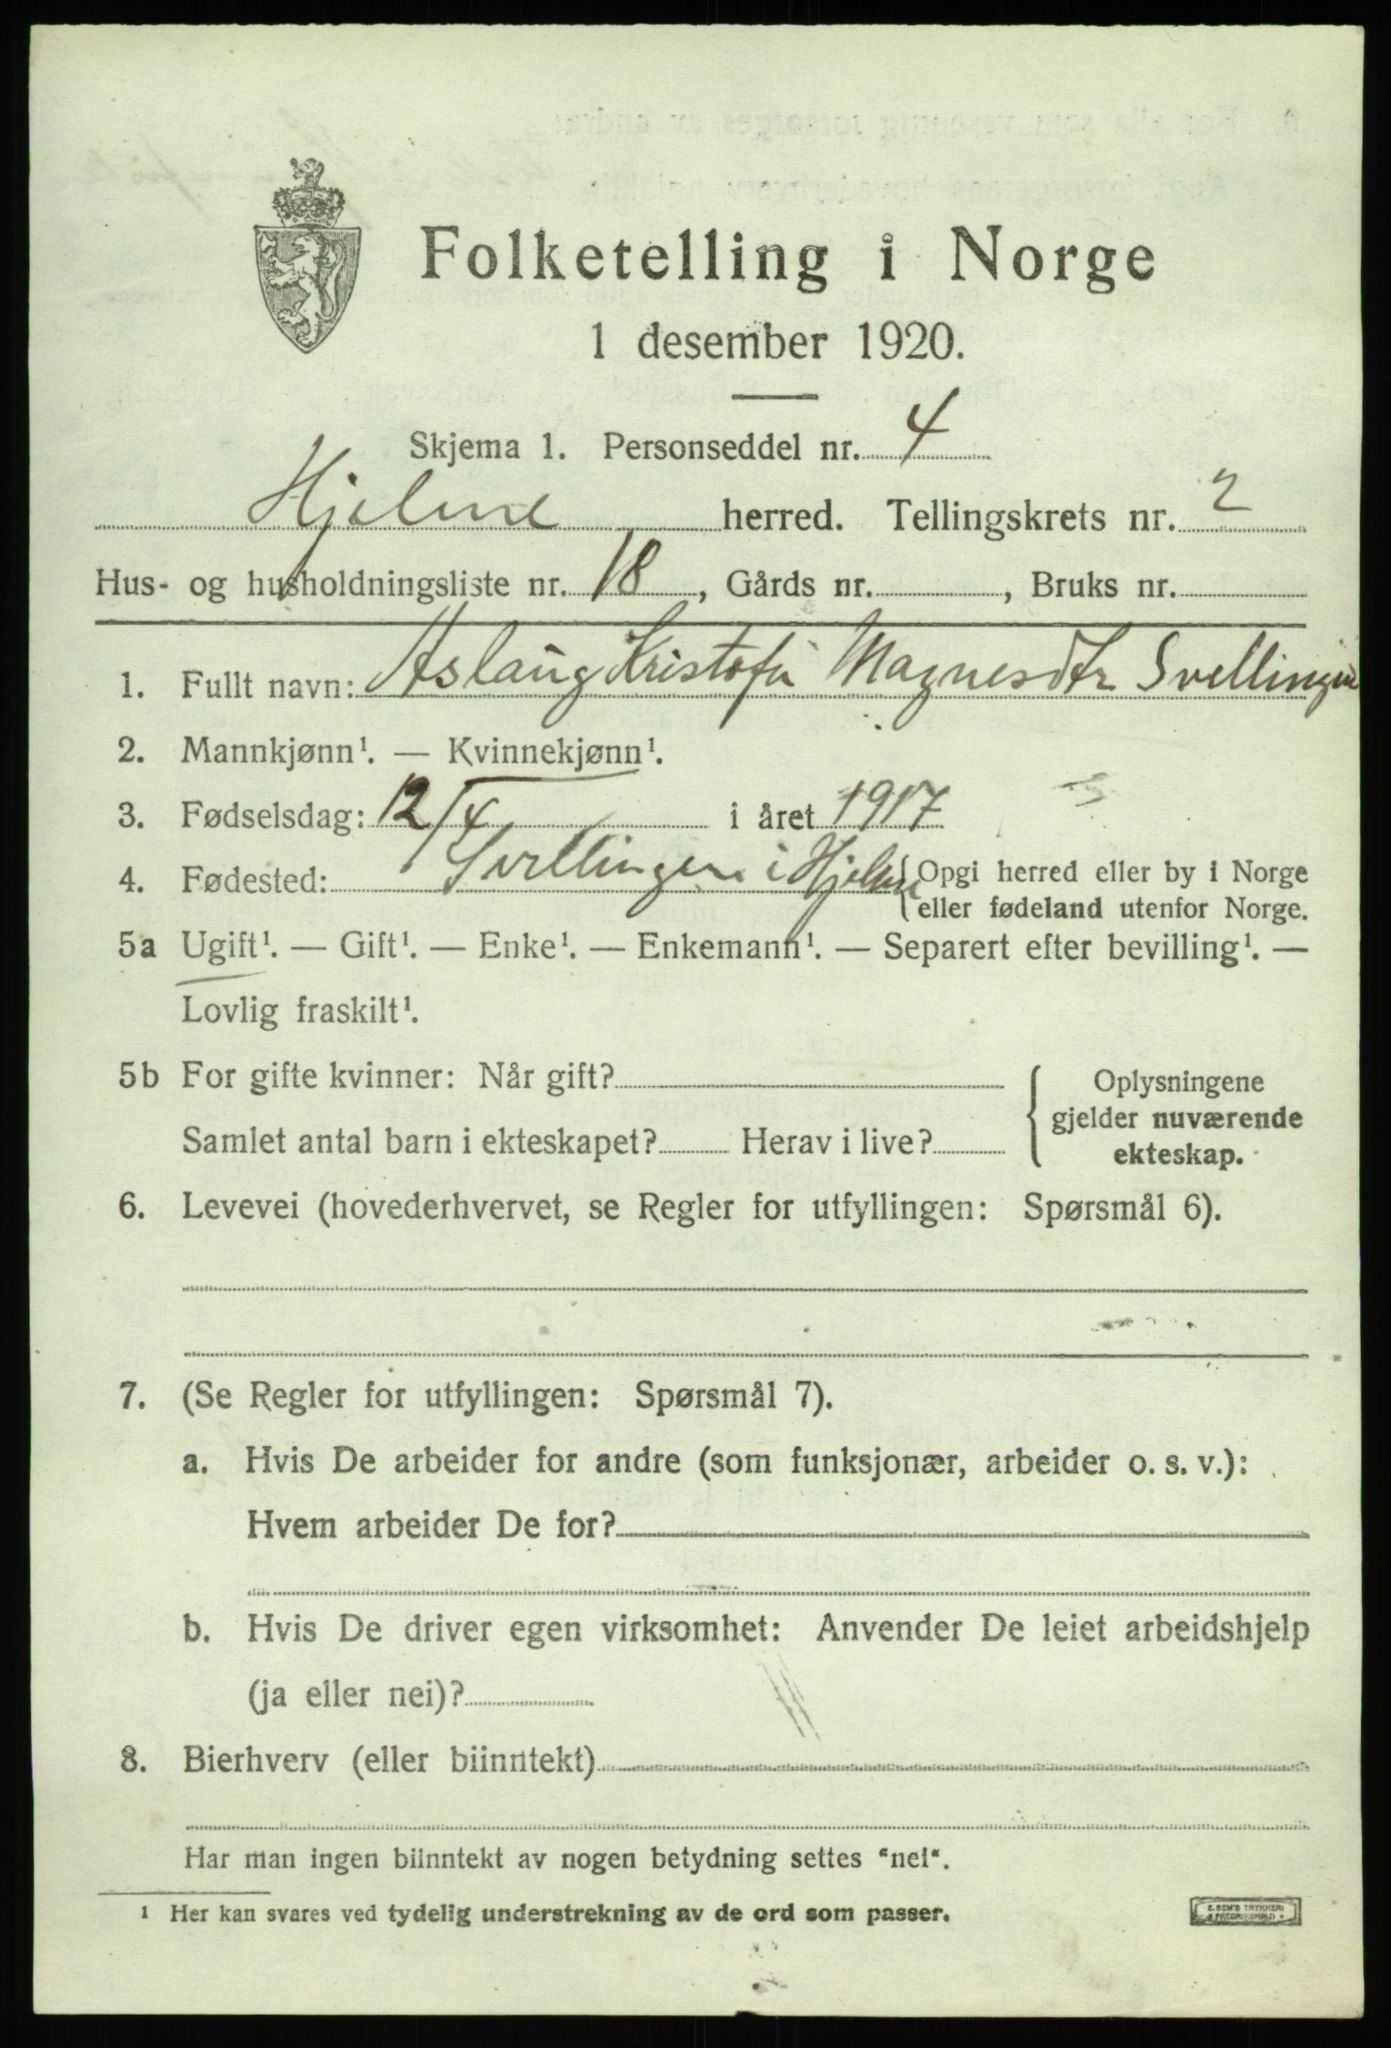 Folketelling i Norge
1 desember 1920.
Skjema 1. Personseddel nr. 4
Hjelme herred. Tellingskrets nr. 2
Hus- og husholdningsliste nr. 18, Gårds nr. , Bruks nr.
1. Fullt navn: Aslaug Kristofa Magnesdtr Svellingen
2. Mannkjønn¹. — Kvinnekjønn¹.
3. Fødselsdag: 12/4 i året 1917
4. Fødested: Svellingen i Hjelme { Opgi herred eller by i Norge
eller fødeland utenfor Norge.
5a Ugift¹. — Gift¹. — Enke¹. — Enkemann¹. — Separert efter bevilling¹. —
Lovlig fraskilt¹.
5b For gifte kvinner: Når gift?
Samlet antal barn i ekteskapet? Herav i live?
{ Oplysningene
gjelder nuværende
ekteskap.
6. Levevei (hovederhvervet, se Regler for utfyllingen: Spørsmål 6).
7. (Se Regler for utfyllingen: Spørsmål 7).
a. Hvis De arbeider for andre (som funksjonær, arbeider o. s. v.):
Hvem arbeider De for?
b. Hvis De driver egen virksomhet: Anvender De leiet arbeidshjelp
(ja eller nei)?
8. Bierhverv (eller biinntekt)
Har man ingen biinntekt av nogen betydning settes "nei".
¹ Her kan svares ved tydelig understrekning av de ord som passer.
E. SEM'S TRYKKERI
FREDRIKSHALD